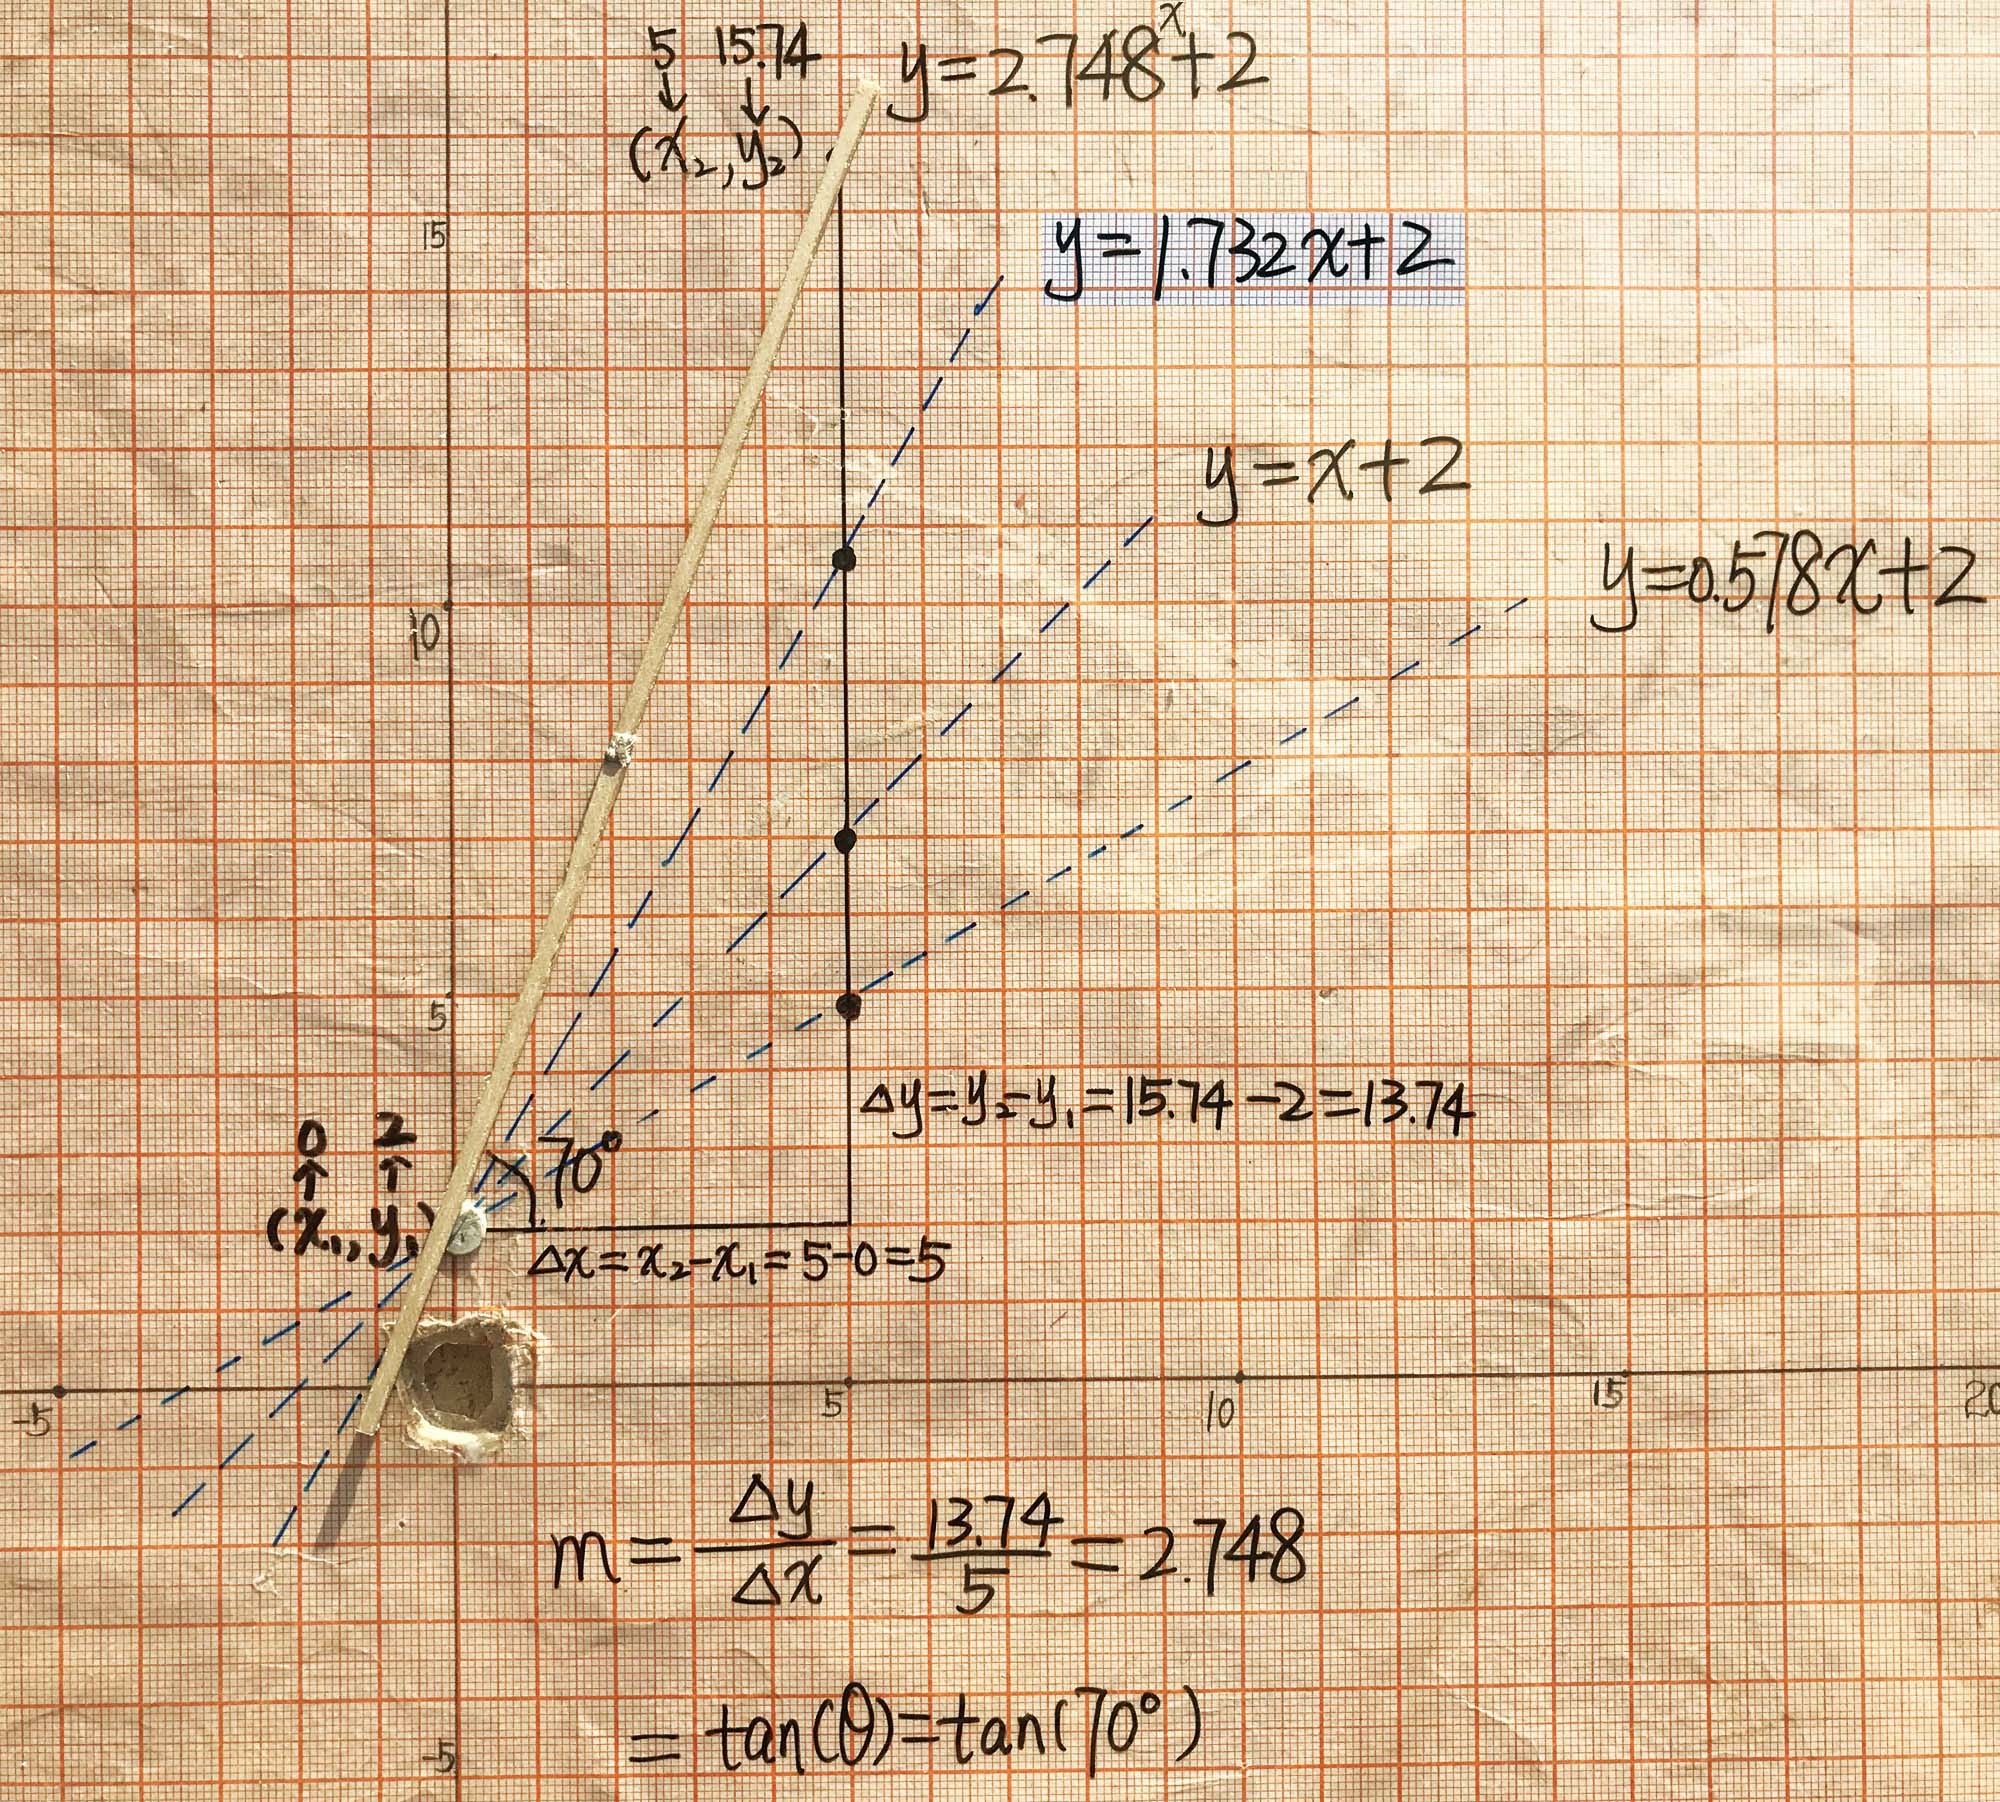 5 15.74
↓ ↓
(x₂, y₂)
y=2.748ˣ+2
15
y=1.732x+2
y=x+2
y=0.578x+2
10
5
Δy=y₂-y₁=15.74-2=13.74
0 2
↑ ↑
(x₁, y₁)
70°
Δx=x₂-x₁=5-0=5
-5
5
10
15
20
m=Δy/Δx=13.74/5=2.748
=tan(θ)=tan(70°)
-5